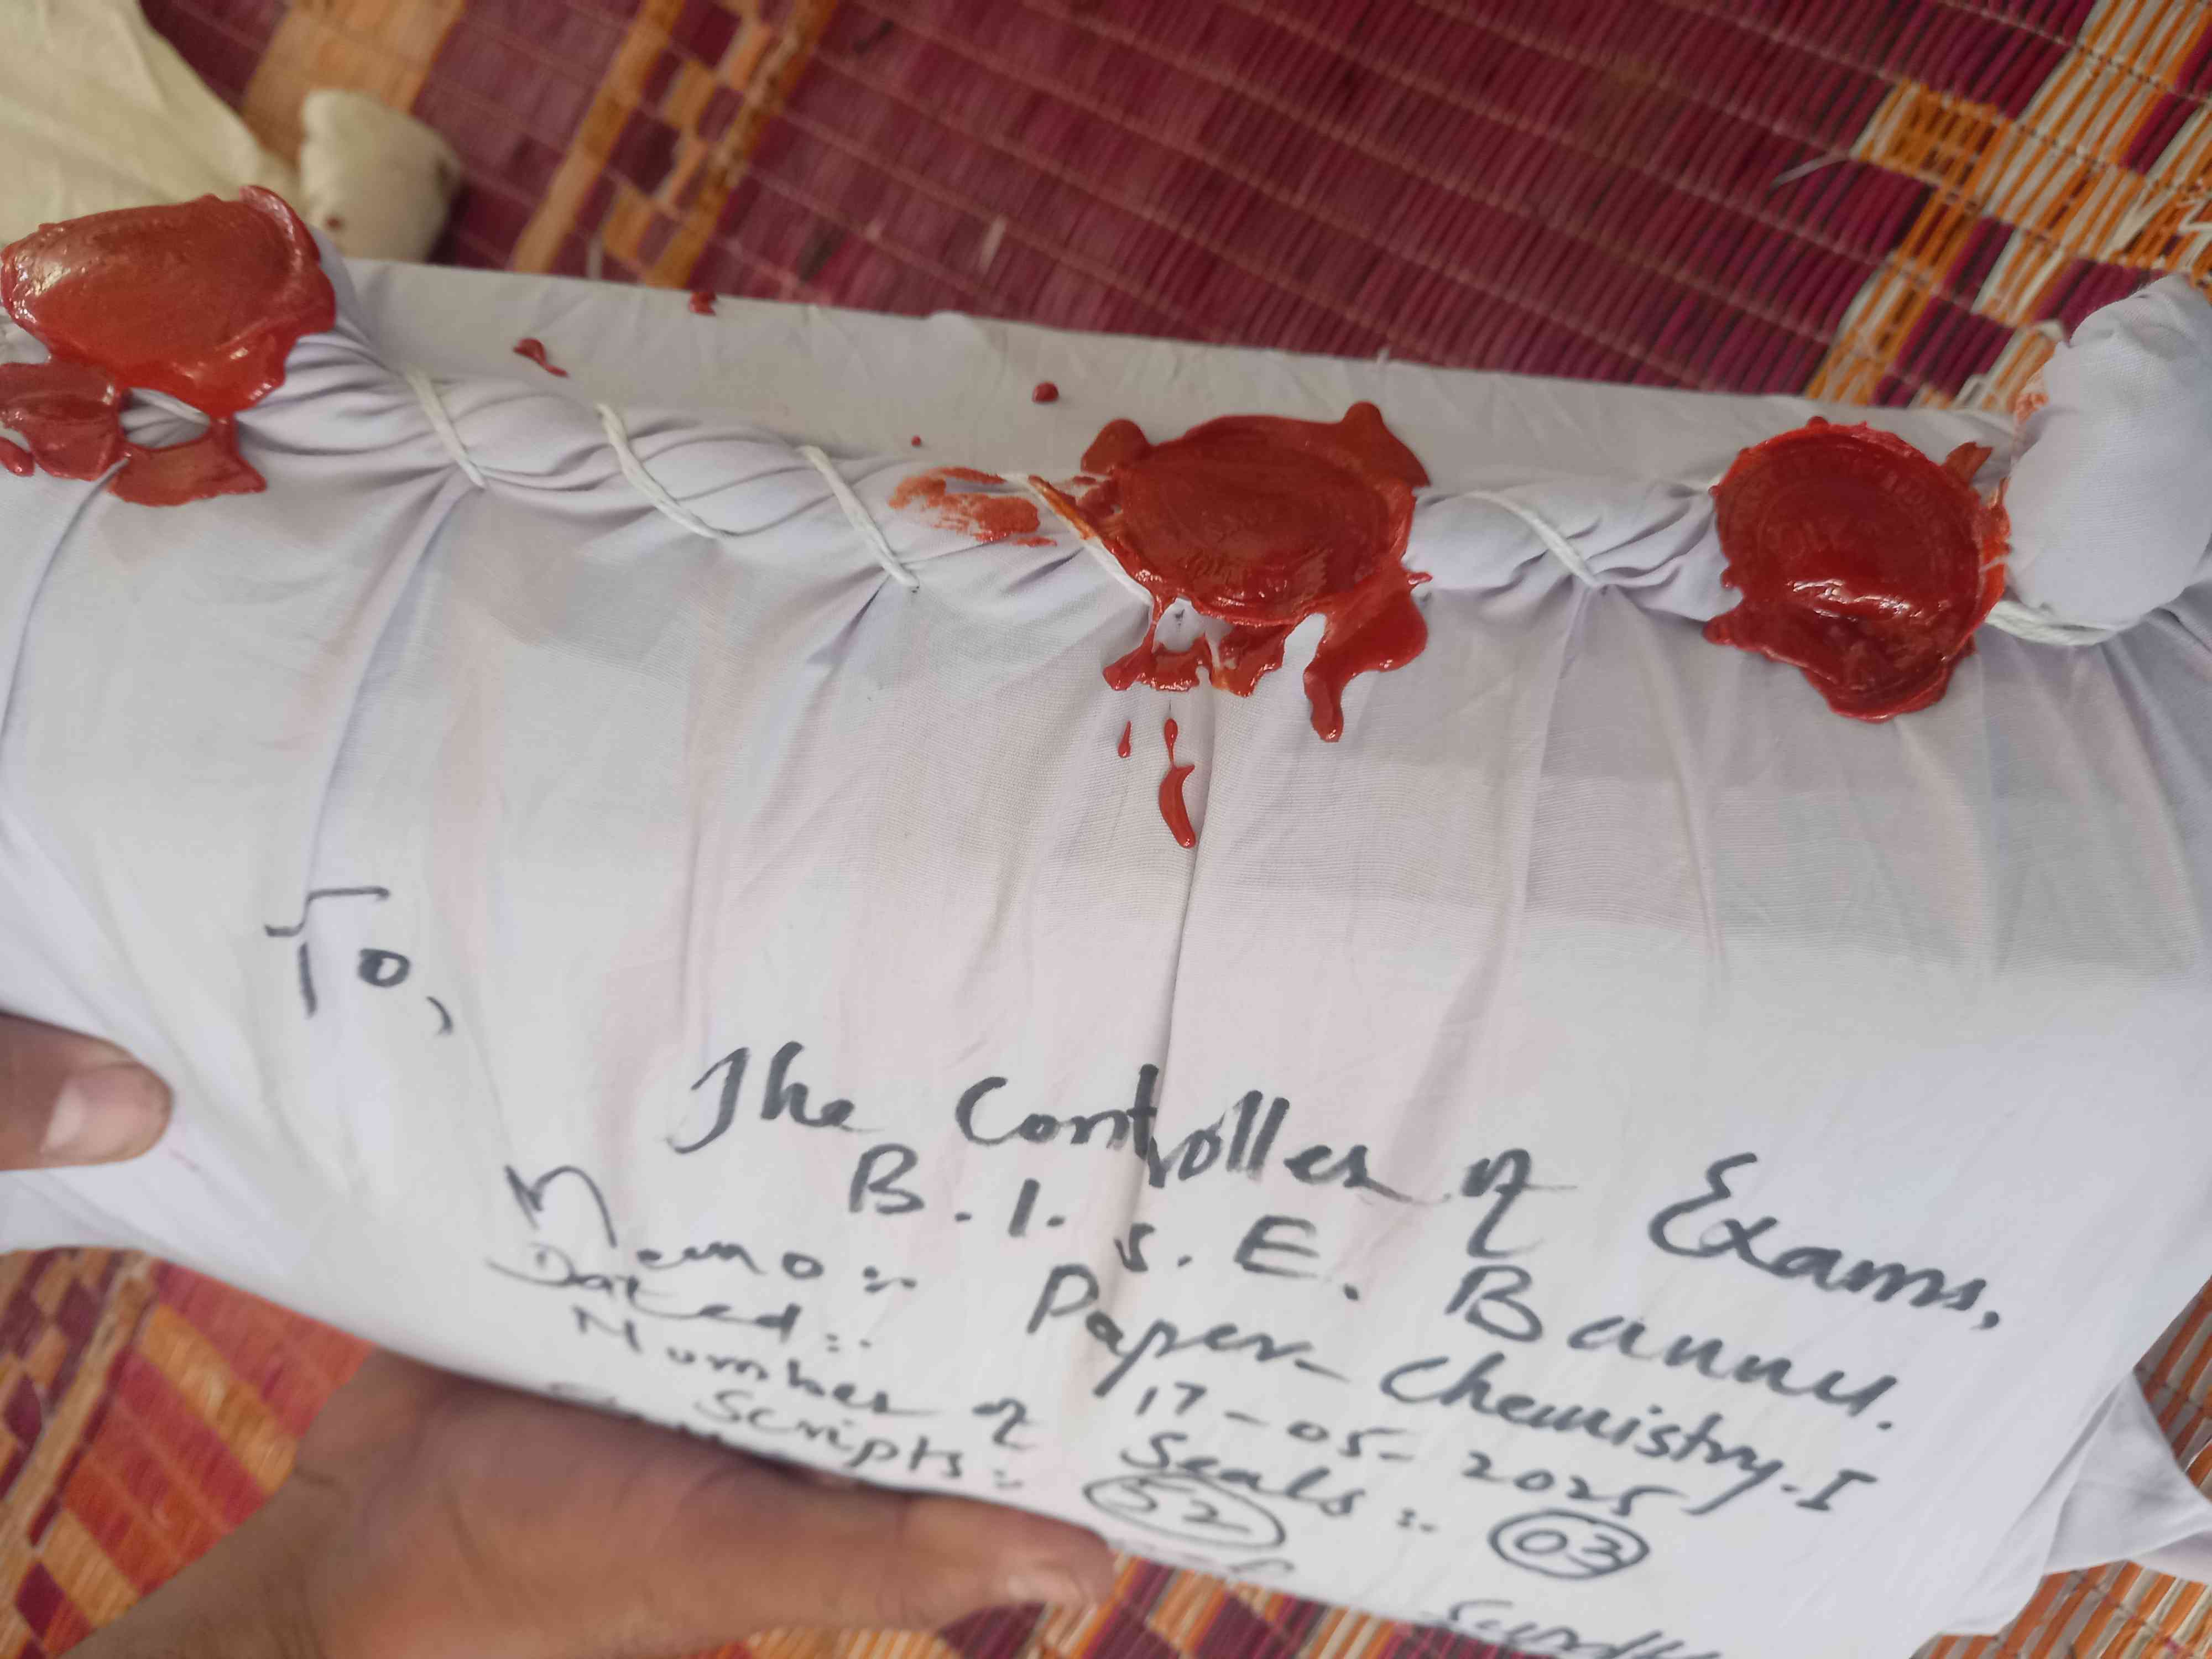 To,
The Controller of Exams,
B.I.S.E. Bannu.
Memo:- Paper- Chemistry-I
Dated:- 17-05-2025
Number of Seals:- 03
Scripts:- 52